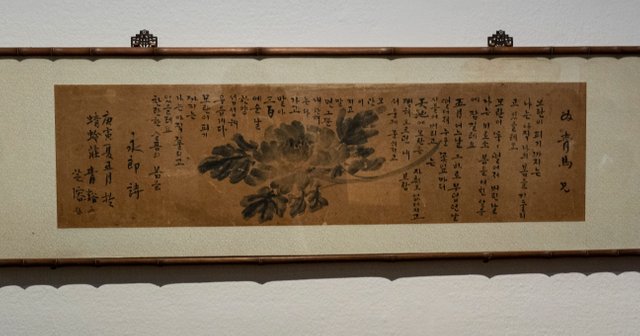 靑馬 兄
모란이 피기까지는
나는 아직 나의 봄을 기둘리
고 있을테요
모란이 뚝뚝 떨어져 버린 날
나는 비로소 봄을 여읜 설움
에 잠길테요
五月 어느날 그 하로 무덥던 날
떨어져 누운 꽃잎마저
시들어 버리고는
天地에 모란은 자최도 없어지고
뻗쳐 오르던 내 보람
서운케 무너졌느니
모란
이 지
고
말
면 그뿐
내 한해
는 다
가고
말아
三百
예순날
하냥
섭섭해
우옵내다
모란이 피기
까지는
나는 아직 기둘리고
있을테요
찬란한 슬픔의 봄을
永郎 詩
庚寅夏五月 於
蜻蛉莊 靑谿
芝溶